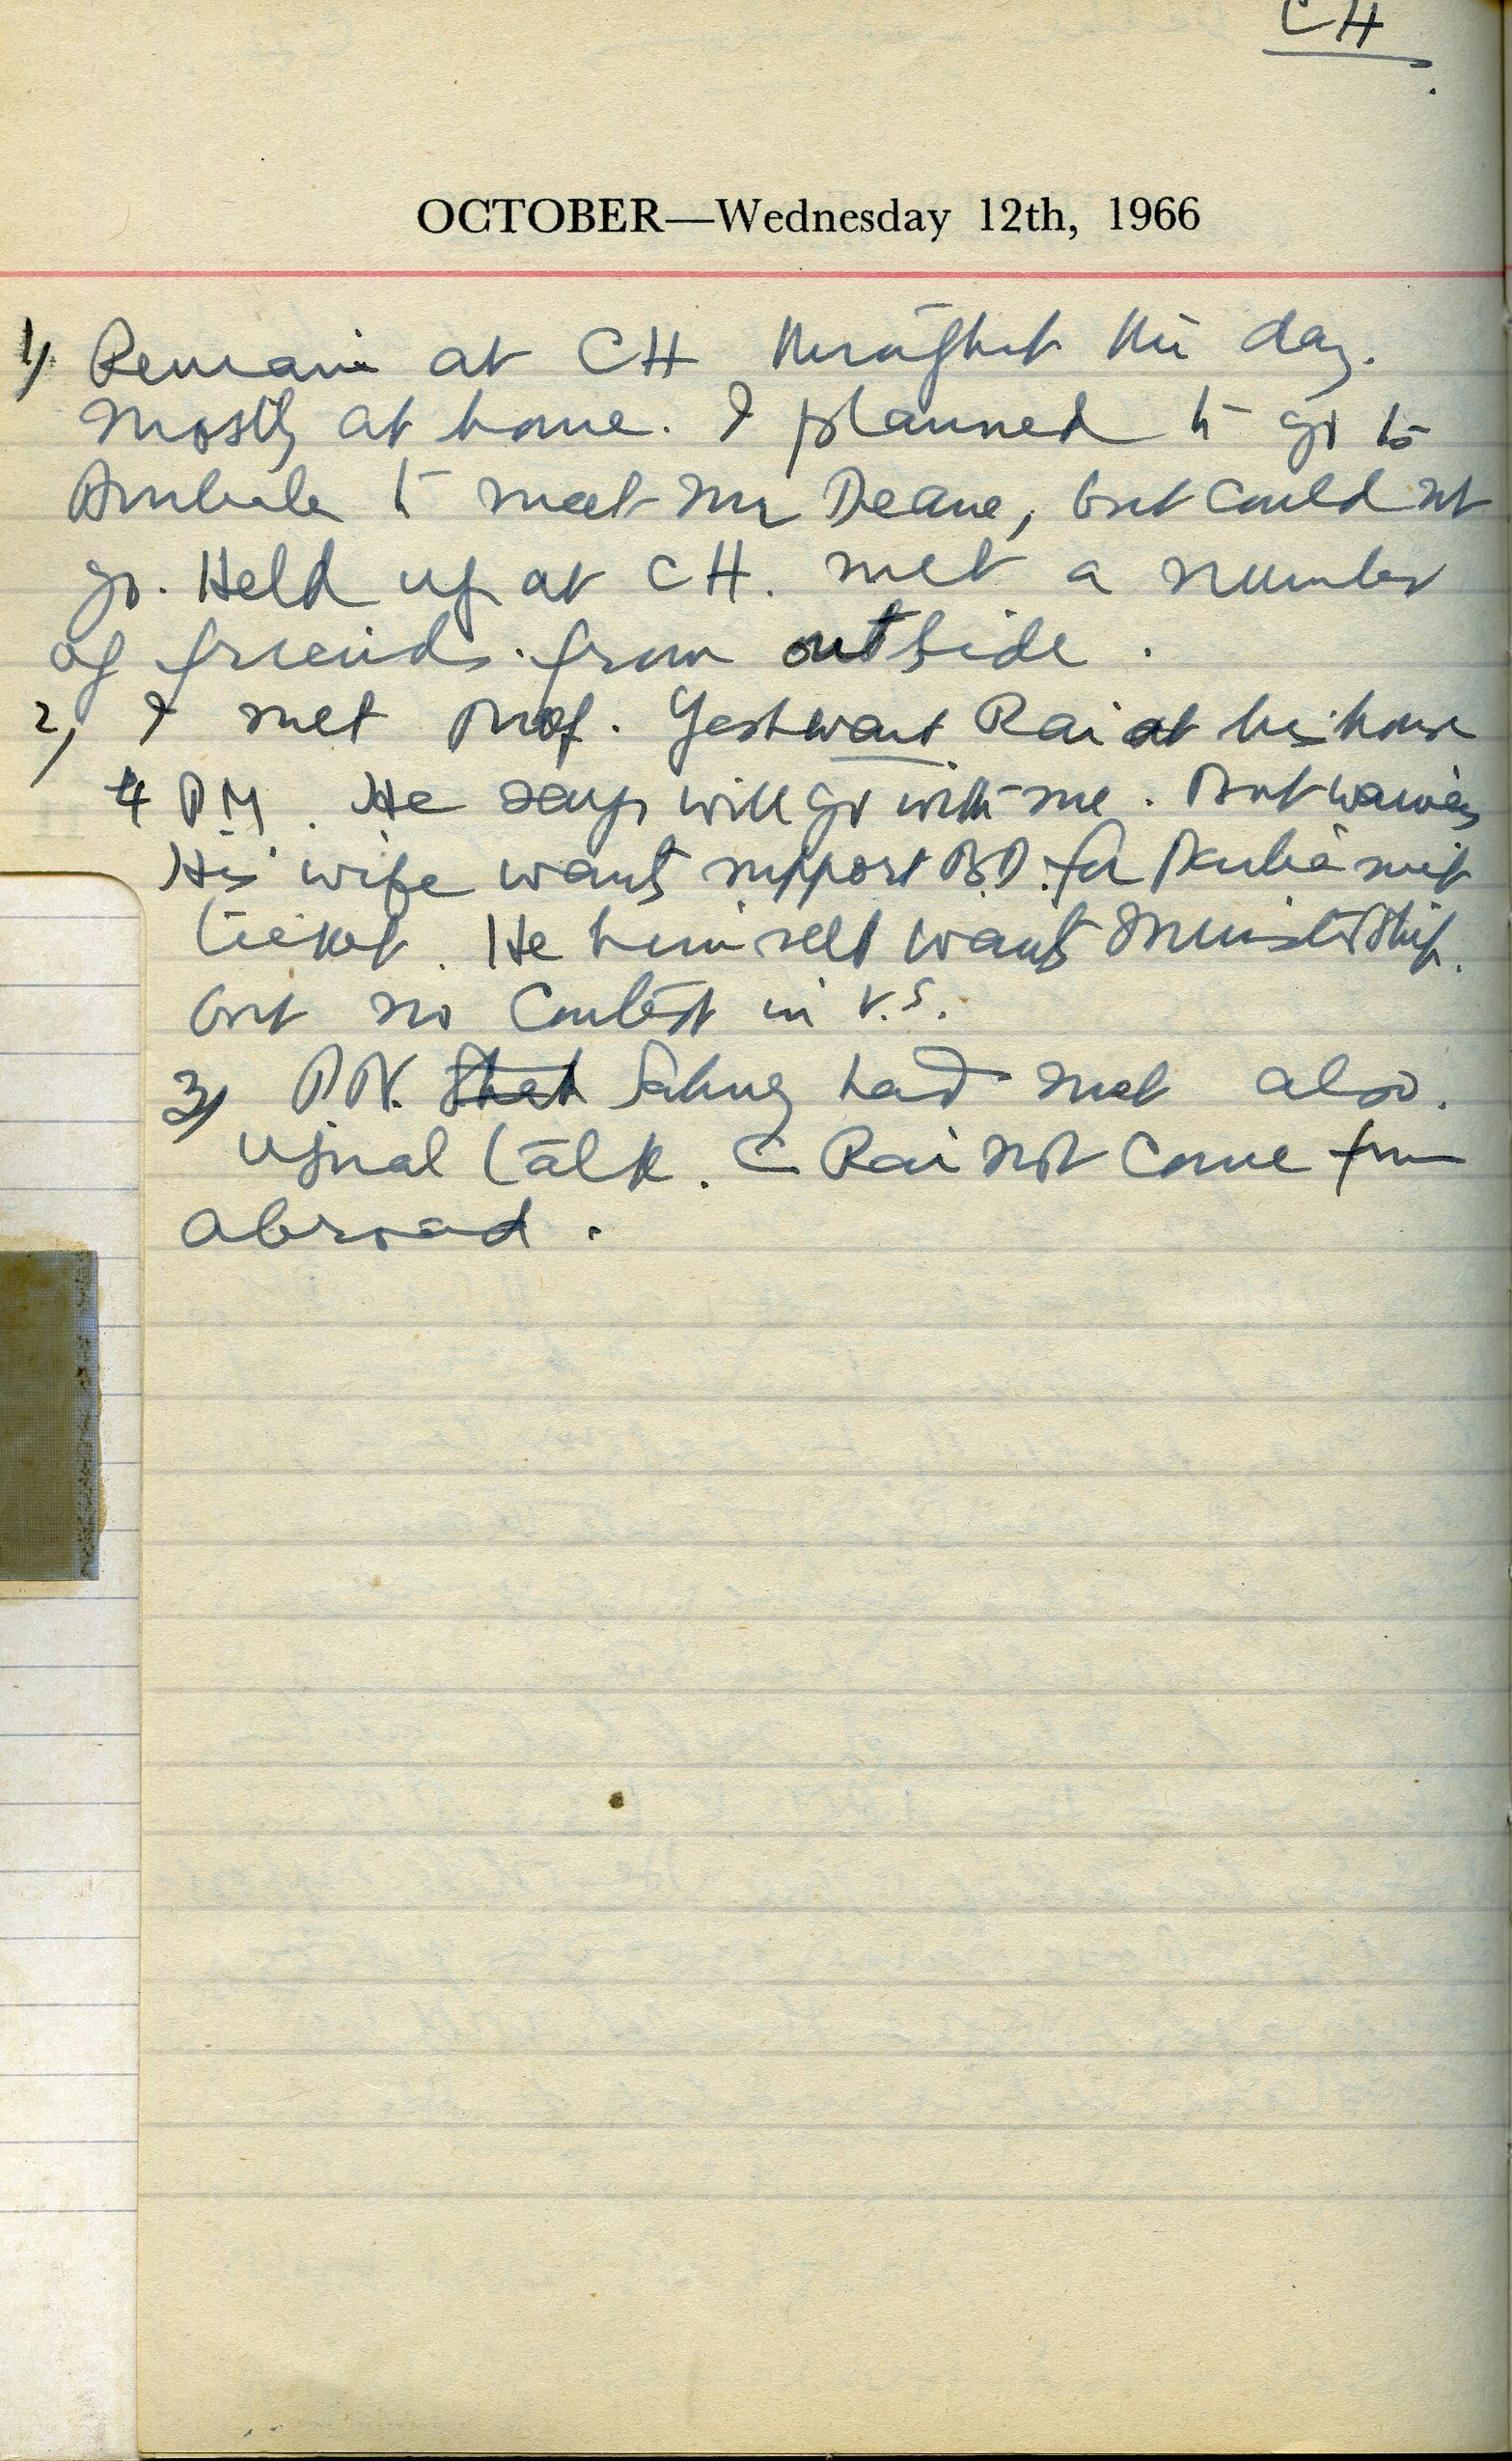 CH
OCTOBER—Wednesday 12th, 1966
1) Remain at CH throughout the day.
Mostly at home. I planned to go to
Ambala to meet Mr Deane, but could not
go. Held up at CH. met a number
of friends from outside.
2) I met Prof. Yashwant Rai at his house
4 PM. He says will go with me. But
His wife wants support B.D. for
ticket. He himself wants Ministership.
but no contest in V.S.
3) P.N. Sahney had met also.
Usual talk. C Rai not come from
abroad.